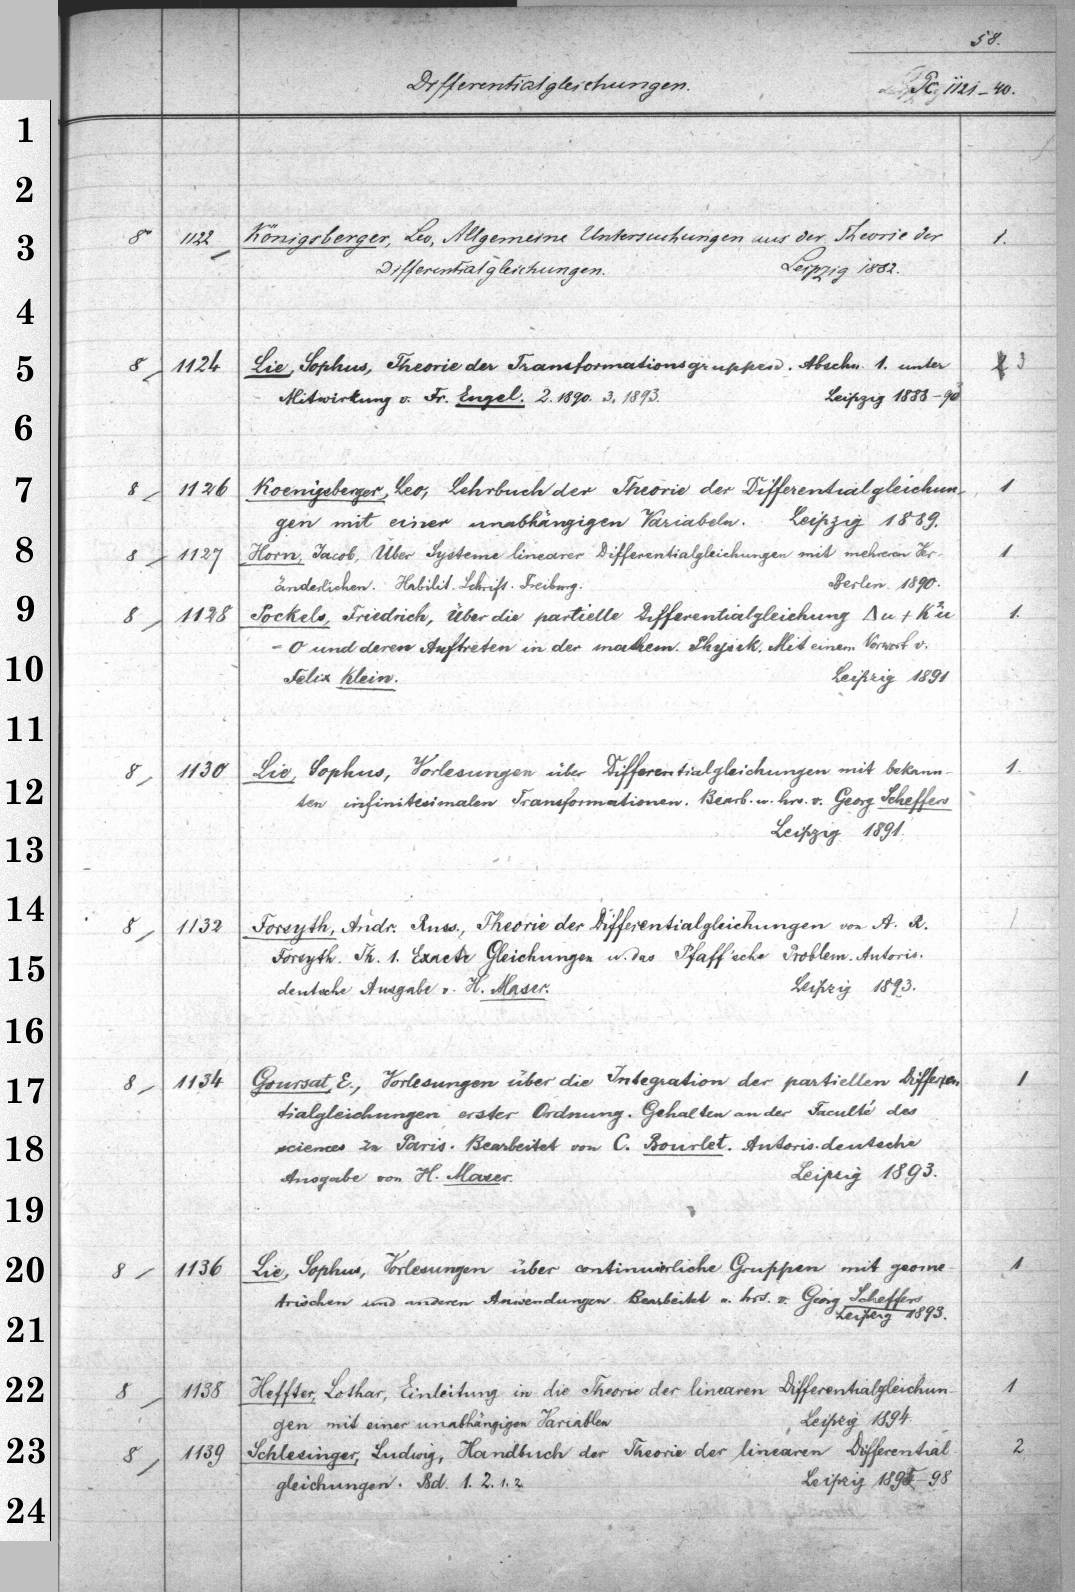 58.
Differentialgleichungen. Pc 1121-40.
1
2
8° 1122 Königsberger, Leo, Allgemeine Untersuchungen aus der Theorie der 1.
3
Differentialgleichungen. Leipzig 1882.
4
8 1124 Lie, Sophus, Theorie der Transformationsgruppen. Abschn. 1. unter 3
5
Mitwirkung v. Fr. Engel. 2. 1890. 3. 1893. Leipzig 1888-93
6
7 8 1126 Koenigsberger, Leo, Lehrbuch der Theorie der Differentialgleichun- 1
gen mit einer unabhängigen Variabeln. Leipzig 1889.
8 8 1127 Horn, Jacob, Über Systeme linearer Differentialgleichungen mit mehreren Ver- 1
änderlichen. Habilit. Schrift. Freiburg. Berlin 1890.
9 8 1128 Pockels, Friedrich, Über die partielle Differentialgleichung Δu + K²u 1.
= 0 und deren Auftreten in der mathem. Physik. Mit einem Vorwort v.
10
Felix Klein. Leipzig 1891
11
8 1130 Lie, Sophus, Vorlesungen über Differentialgleichungen mit bekann- 1.
12
ten infinitesimalen Transformationen. Bearb. u. hrs. v. Georg Scheffers
Leipzig 1891.
13
14
8 1132 Forsyth, Andr. Russ., Theorie der Differentialgleichungen von A. R. 1
Forsyth. Th. 1. Exacte Gleichungen u. das Pfaff'sche Problem. Autoris.
15
deutsche Ausgabe v. H. Maser. Leipzig 1893.
16
17 8 1134 Goursat, E., Vorlesungen über die Integration der partiellen Differen- 1
tialgleichungen erster Ordnung. Gehalten an der Faculté des
18
sciences zu Paris. Bearbeitet von C. Bourlet. Autoris. deutsche
Ausgabe von H. Maser. Leipzig 1893.
19
20 8 1136 Lie, Sophus, Vorlesungen über continuierliche Gruppen mit geome- 1
trischen und anderen Anwendungen. Bearbeitet u. hrs. v. Georg Scheffers
Leipzig 1893.
21
22 8 1138 Heffter, Lothar, Einleitung in die Theorie der linearen Differentialgleichun- 1
gen mit einer unabhängigen Variablen Leipzig 1894.
23 8 1139 Schlesinger, Ludwig, Handbuch der Theorie der linearen Differential- 2
gleichungen. Bd. 1. 2. 1. 2 Leipzig 1895-98
24